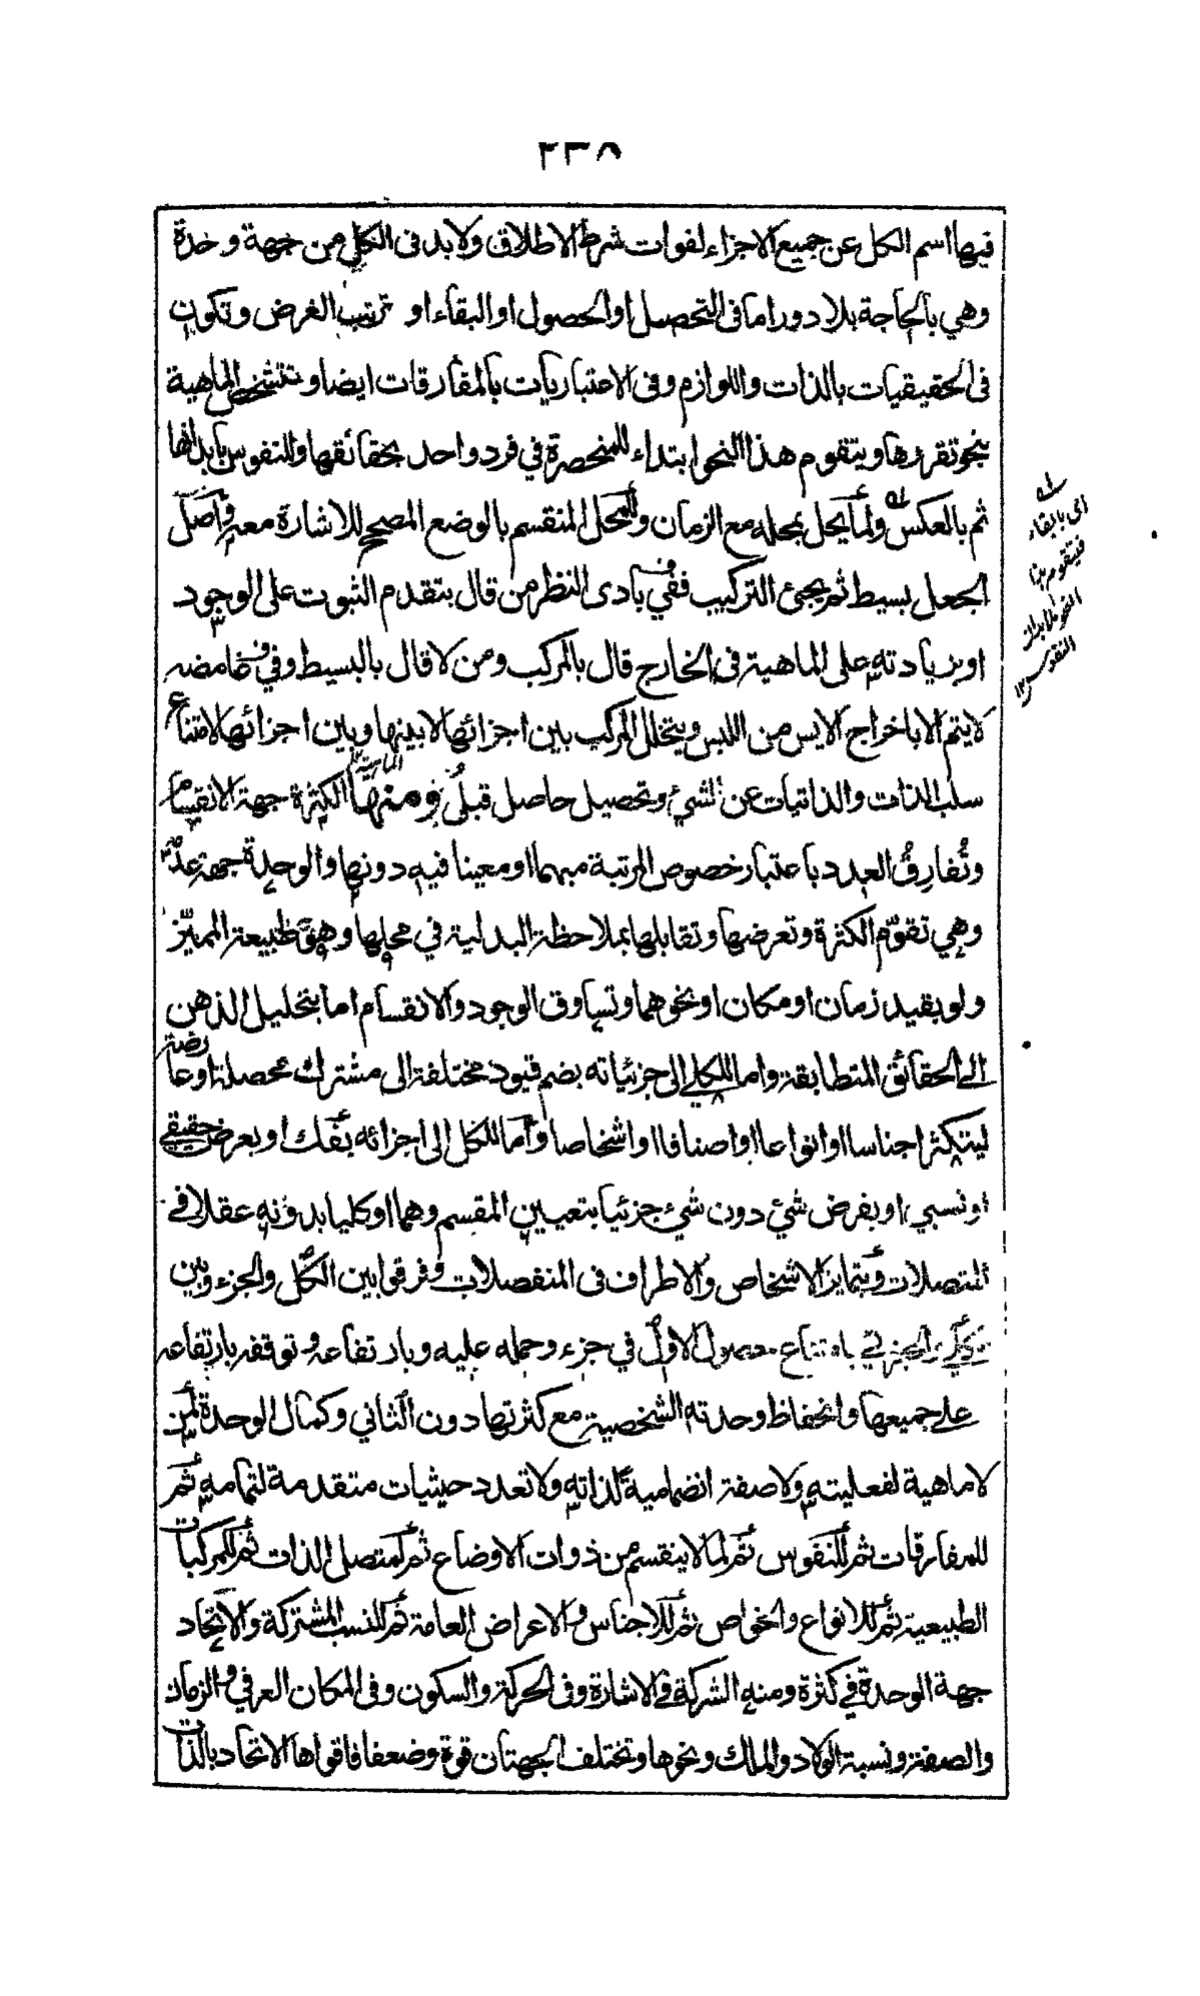 ٢٣٥
فيها اسم الكل عن جميع الاجزاء لفوات شرط الاطلاق ولا بد فى الكلي من جهة وحدة
وهي بالحاجة بلا دور اما فى التحصيل او الحصول او البقاء او ترتب الغرض وتكون
فى الحقيقيات بالذات واللوازم وفى الاعتباريات بالمفارقات ايضا وتتشخص الماهية
بنحو تقررها ويتقوم هذا النحو ابتداء للمنحصرة في فرد واحد بحقائقها وللنفوس بابدانها
ثم بالعكس ولما يحل بمحله مع الزمان وللمحل المنقسم بالوضع المصحح للاشارة معه واصل
الجعل بسيط ثم يجئ التركيب ففي بادى النظر من قال بتقدم الثبوت على الوجود
او بزيادته على الماهية فى الخارج قال بالمركب ومن لا قال بالبسيط وفي غامضه
لا يتم الا باخراج الايس من الليس ويتخلل المركب بين اجزائها لا بينها وبين اجزائها لامتناع
سلب الذات والذاتيات عن الشيء وتحصيل حاصل قبل ومنها الكثرة جهة الانقسام
وتُفارِقُ العدد باعتبار خصوص المرتبة مبهما او معينا فيه دونها والوحدة جهة عدمه
وهي تقوّم الكثرة وتعرضها وتقابلها بملاحظة البدلية في محلها وهو طبيعة المميّز
ولو بقيد زمان او مكان او نحوهما وتساوق الوجود والانقسام اما بتحليل الذهن
الى الحقائق المتطابقة واما للكلي الى جزئياته بضم قيود مختلفة الى مشترك محصلة او عارضة
ليتكثر اجناسا او انواعا او اصنافا او اشخاصا واما للكل الى اجزائه بفك او بعرض حقيقي
او نسبي او بفرض شيء دون شيء جزئيا بتعيين المقسم وهما او كليا بدونه عقلا في
المتصلات وبتمايز الاشخاص والاطراف فى المنفصلات وفرقوا بين الكل والجزء وبين
الكلي والجزئي بامتناع حصول الاول في جزء وحمله عليه وبارتفاعه وتوقفه بارتفاعه
على جميعها وانحفاظ وحدته الشخصية مع كثرتها دون الثاني وكمال الوحدة لمن
لا ماهية لفعليته ولا صفة انضمامية لذاته ولا تعدد حيثيات متقدمة لتمامه ثم
للمفارقات ثم للنفوس ثم لما لا ينقسم من ذوات الاوضاع ثم لمتصل الذات ثم للمركبات
الطبيعية ثم للانواع والخواص ثم للاجناس والاعراض العامة ثم للنسب المشتركة والاتحاد
جهة الوحدة في كثرة ومنه الشركة فى الاشارة وفى الحركة والسكون وفى المكان العرفي والزمان
والصفة ونسبة الولاد والمالك ونحوها وتختلف الجهتان قوة وضعفا فاقواها الاتحاد بالذات
اى بابقاء
فيتقوم هذا
النحو للابدان
النفوس ١٢